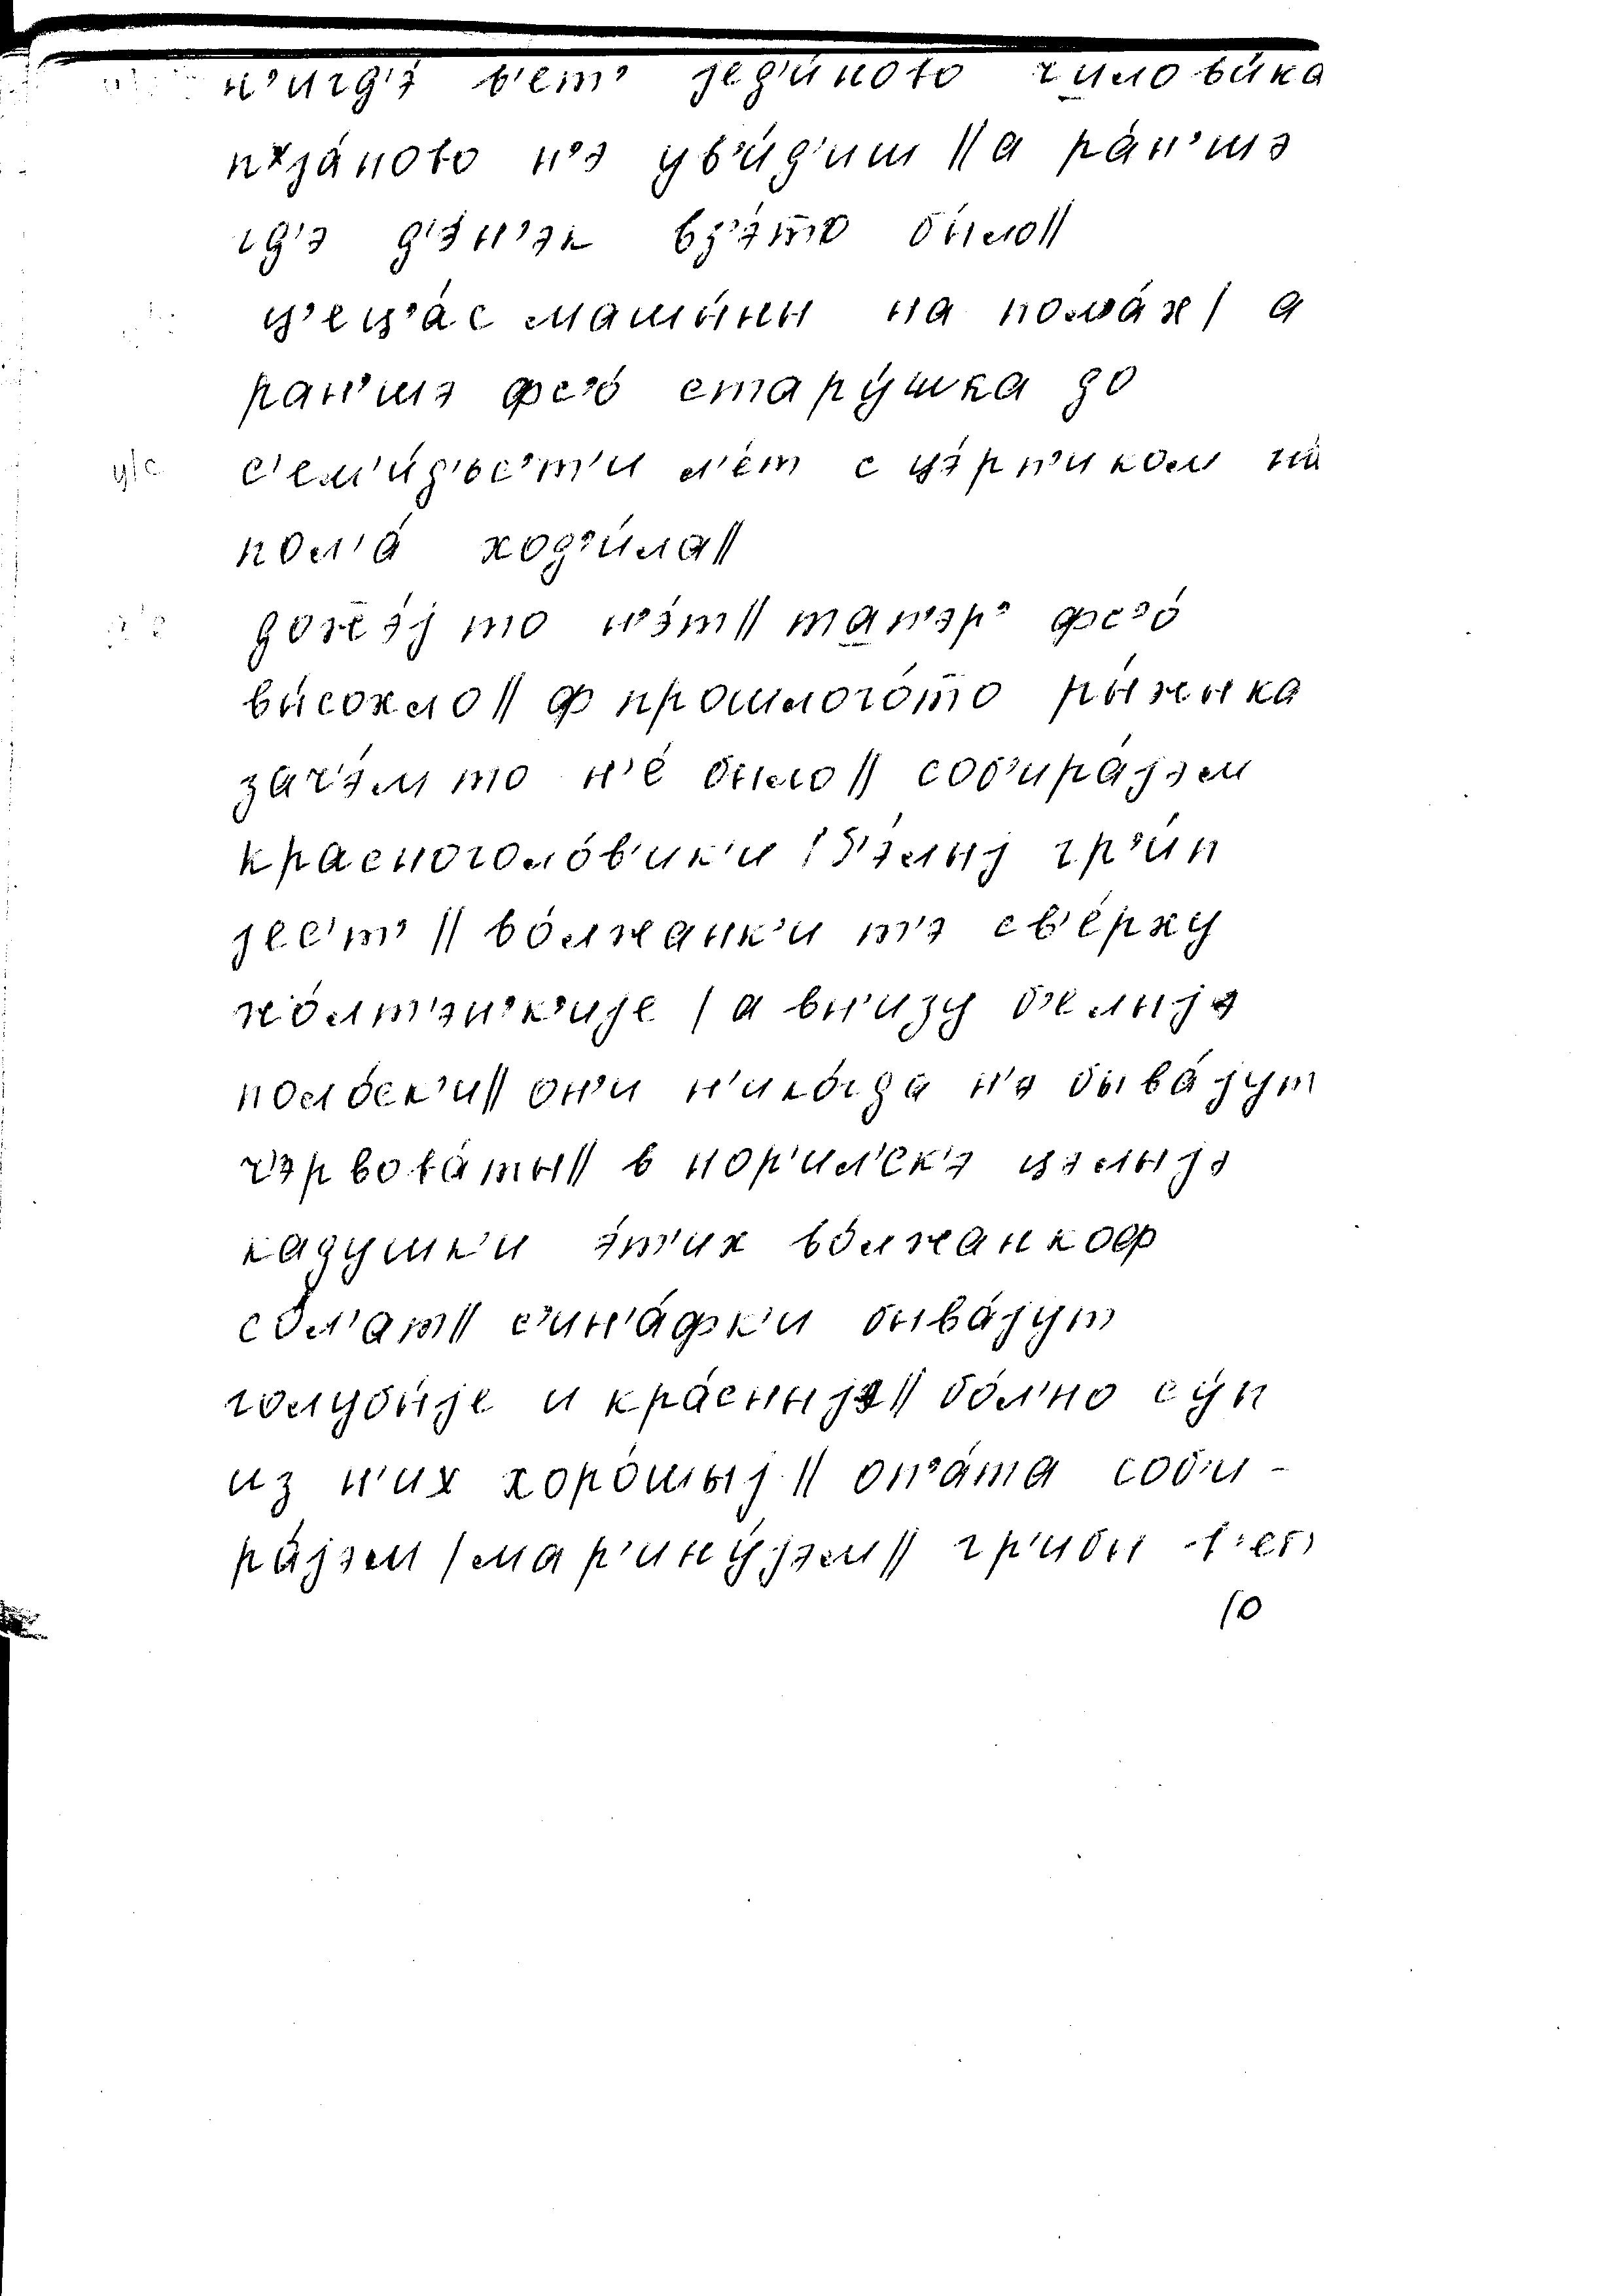 н'игд'э́ в'ет' јед'и́ново чиловы́ка
пјя́ново н'э ув'и́д'иш || а ра́н'шэ
гд'э д'э́н'эк вз'э́то бы́ло ||
ц'ец'а́с машы́ны на пол'а́х / а
ран'шэ фс'о́ стару́шка до
у/с с'ем'и́д'ьс'т'и л'е́т с цэ́рп'иком на
пол'а́ ход'и́ла ||
дожэ́ј то н'э́т || тап'эр' фс'о́
вы́сохло || ф прошлого́то ры́жыка
зач'э́м то н'е́ было || соб'ира́јэм
красноголо́в'ик'и / б'э́лыј гр'и́п
јес'т' || во́лжанк'и т'э св'е́рху
жо́лт'эн'к'ије / а вн'изу б'елыјэ
поло́ск'и || он'и н'ико́гда н'э быва́јут
чэрвова́ты || в нор'ил'ск'э цэлыјэ
кадушк'и э́т'их во́лжанкоф
сол'ат || с'ин'а́фк'и быва́јут
голубы́је и кра́сныјэ || бо́л'но су́п
из н'их хоро́шыј || оп'а́та соб'и-
ра́јэм / мар'ину́јэм || гр'ибы
10